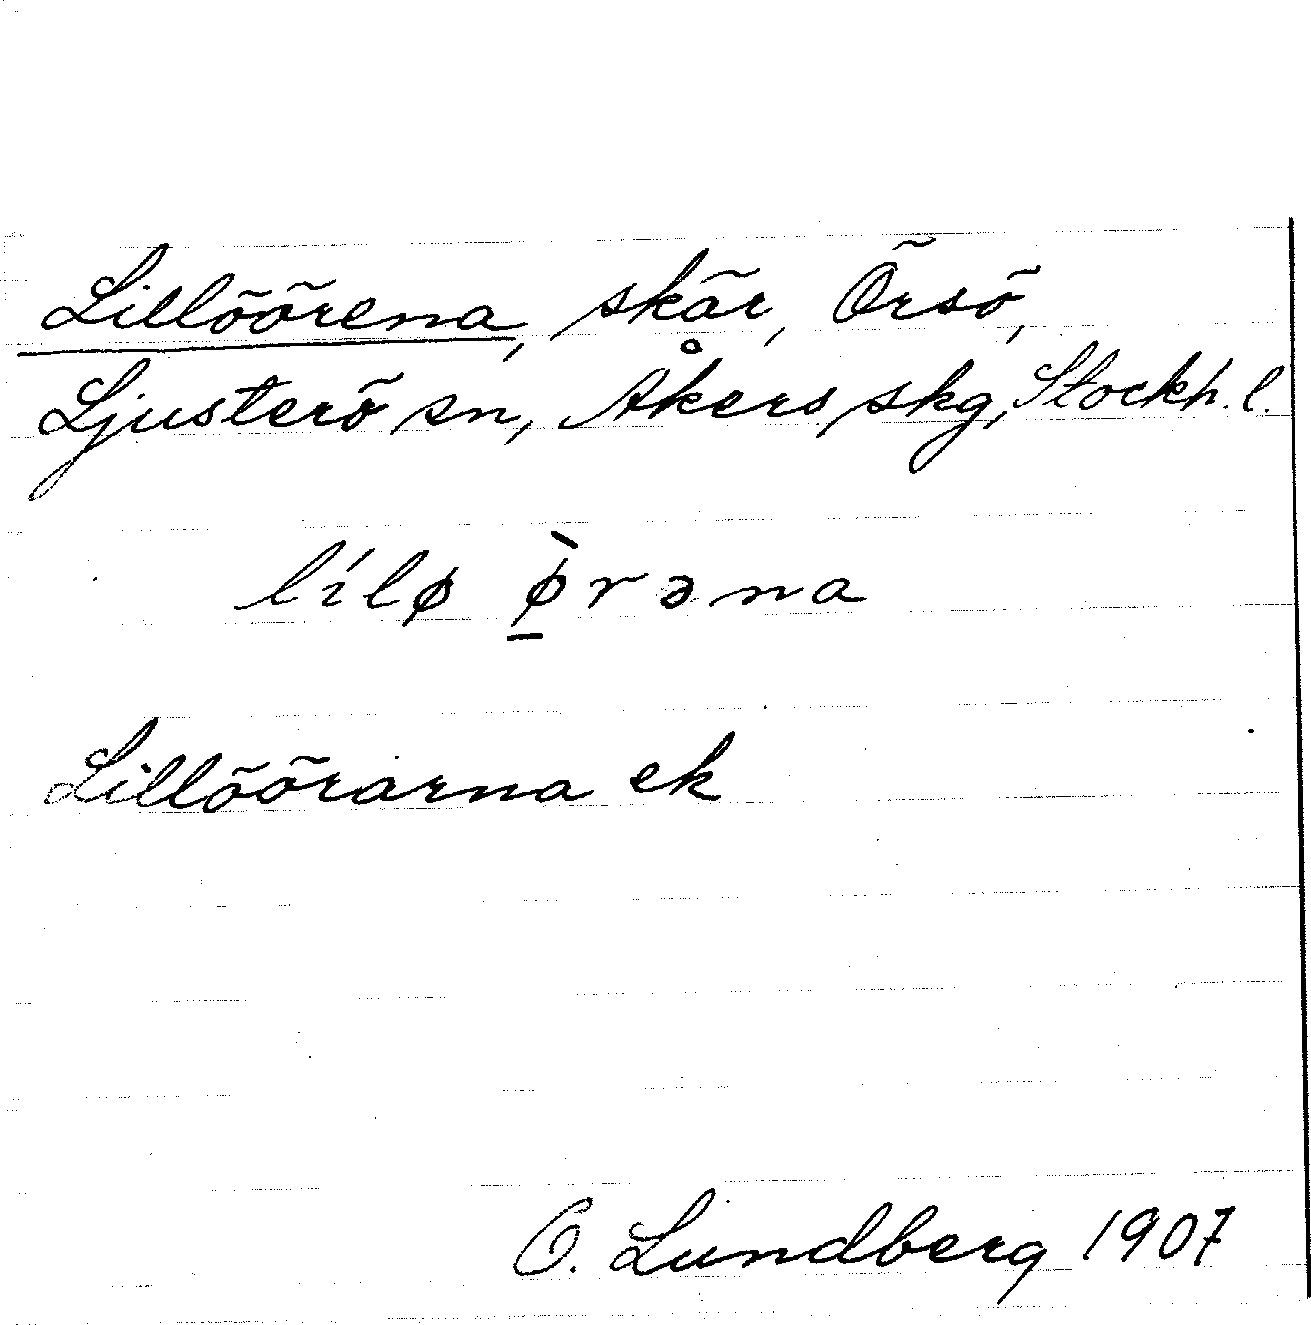 Lillöörena, skär, Örsö,
Ljusterö sn, Åkers skg, Stockh. l.
lílø ø̱̀rəna
Lillöörarna ek
O. Lundberg 1907